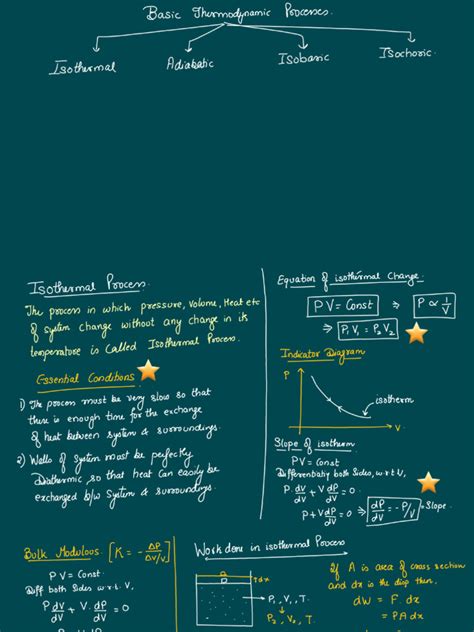 Basic Thermodynamic Processes.
Isothermal
Adiabatic
Isobaric
Isochoric
Isothermal Process.
The process in which pressure, Volume, Heat etc
of system change without any change in its
temperature is Called Isothermal Process.
Essential Conditions
1) The process must be very slow so that
there is enough time for the exchange
of heat between system & surroundings.
2) Walls of System must be perfectly
Diathermic, so that heat can easily be
exchanged b/w System & surroundings.
Bulk Modulous. [K = - ΔP / ΔV/V]
PV = Const.
Diff both Sides w.r.t. V,
P dV/dV + V. dP/dV = 0
Equation of isothermal Change.
PV = Const ⇒ P ∝ 1/V
⇒ P₁V₁ = P₂V₂
Indicator Diagram
P
isotherm
V
Slope of isotherm
PV = Const
Differentiating both Sides, w.r.t V,
P. dV/dV + V dP/dV = 0.
P + V dP/dV = 0 ⇒ dP/dV = - P/V = Slope.
Work done in isothermal Process
dx
P₁, V₁, T.
P₂, V₂, T
If A is area of cross section
and dx is the disp then.
dW = F. dx
= PA dx